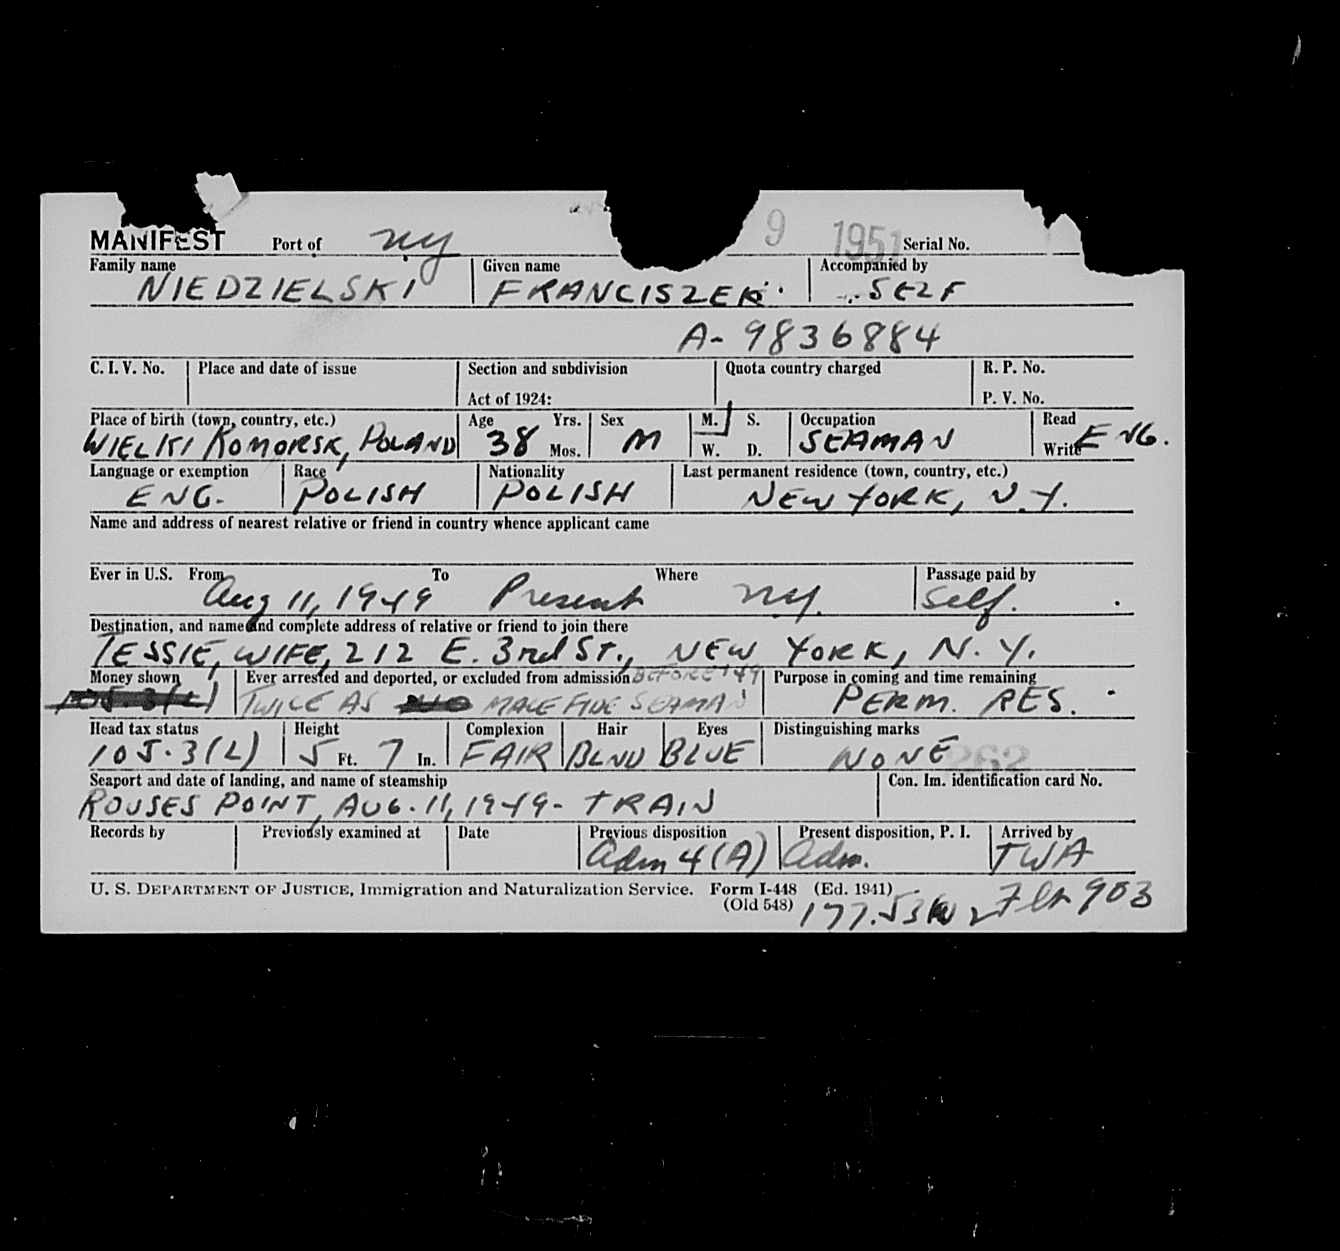 9 1951
MANIFEST Port of NY Serial No.
Family name Given name Accompanied by
NIEDZIELSKI FRANCISZEK SELF
A-9836884
C. I. V. No. Place and date of issue Section and subdivision Quota country charged R. P. No.
Act of 1924: P. V. No.
Place of birth (town, country, etc.) Age Yrs. Sex M. S. Occupation Read
WIELKI KOMORSK, POLAND 38 Mos. M W. D. SEAMAN Write ENG.
Language or exemption Race Nationality Last permanent residence (town, country, etc.)
ENG. POLISH POLISH NEW YORK, N.Y.
Name and address of nearest relative or friend in country whence applicant came
Ever in U.S. From To Where Passage paid by
Aug 11, 1949 Present NY. Self.
Destination, and name and complete address of relative or friend to join there
TESSIE, WIFE, 212 E. 3rd ST., NEW YORK, N.Y.
Money shown Ever arrested and deported, or excluded from admission BEFORE '49 Purpose in coming and time remaining
105.3(L) TWICE AS MALE FIDE SEAMAN PERM. RES.
Head tax status Height Complexion Hair Eyes Distinguishing marks
105.3(L) 5 Ft. 7 In. FAIR BLND BLUE NONE 262
Seaport and date of landing, and name of steamship Con. Im. identification card No.
ROUSES POINT, AUG. 11, 1949- TRAIN
Records by Previously examined at Date Previous disposition Present disposition, P. I. Arrived by
Adm 4(A) Adm. TWA
U. S. DEPARTMENT OF JUSTICE, Immigration and Naturalization Service. Form I-448 (Ed. 1941)
(Old 548) 177.53 Flt 903